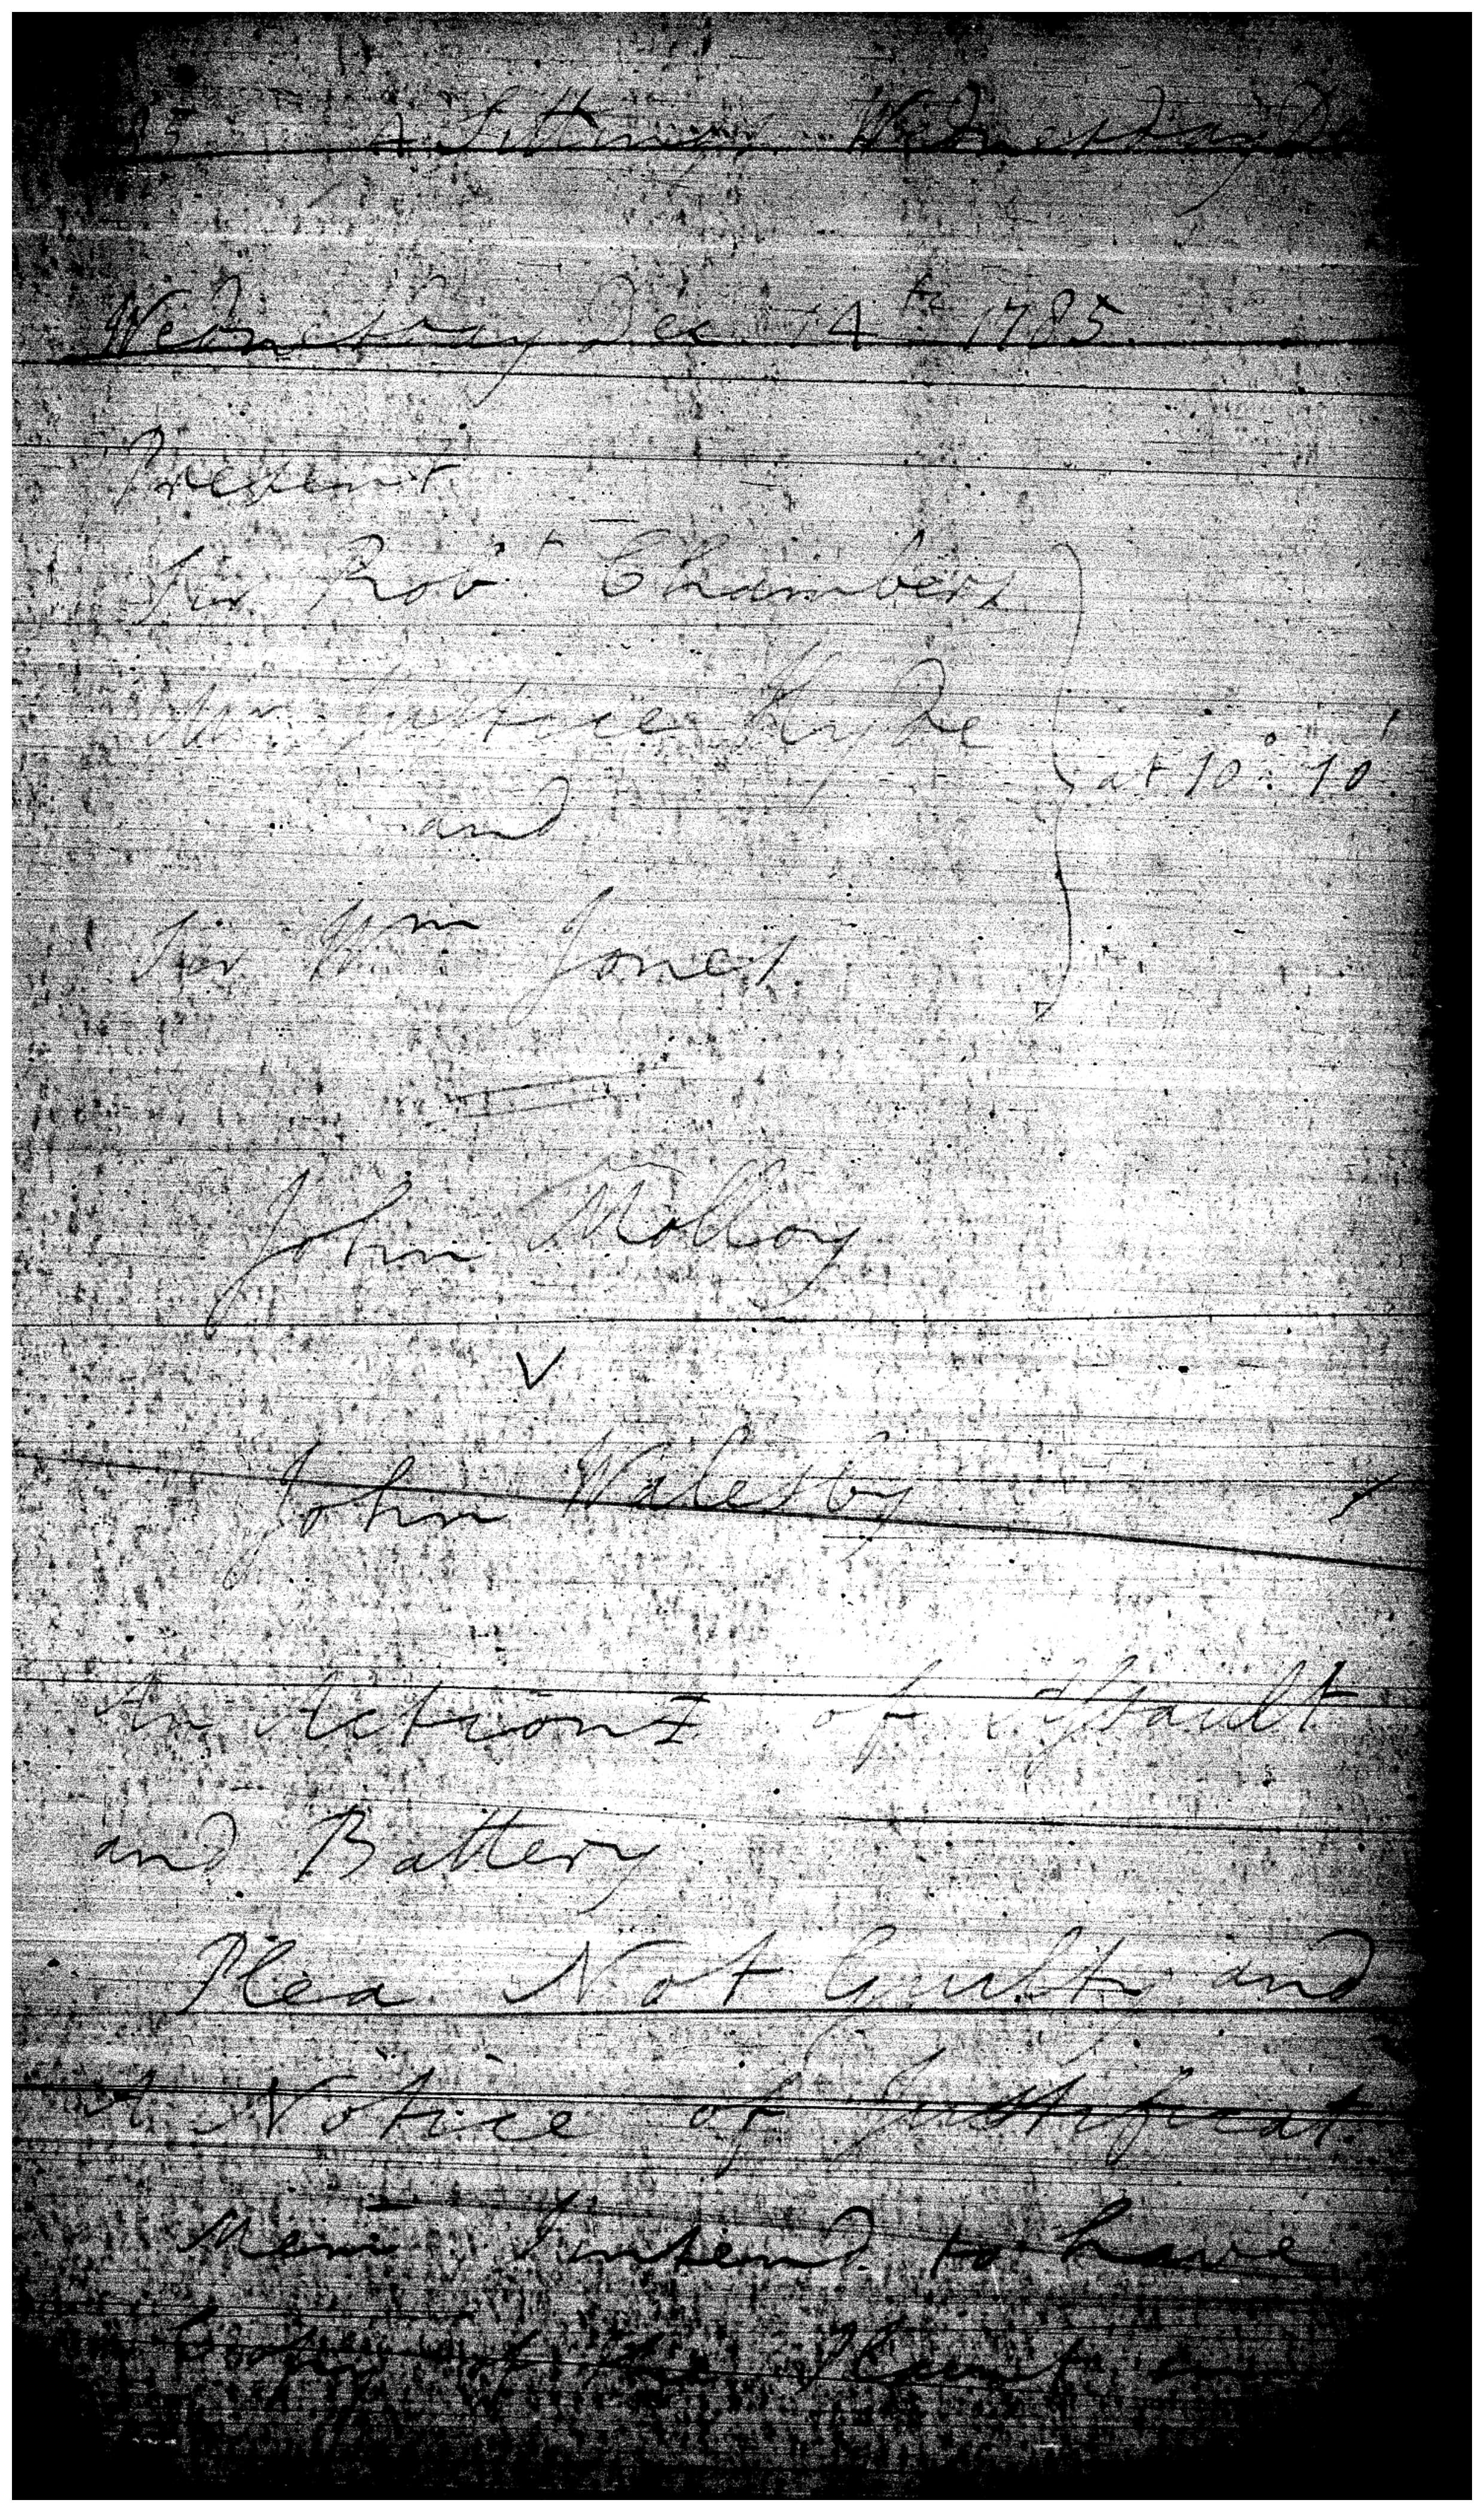 85 4 Sittings. Wednesday De
Wednesday Dec 14th 1785.
Present
Sir Robt Chambers
Mr Justice Hyde
at 10°. 10'.
and
Sir Wm Jones
John Molloy
v
John Walesby
An Action of Assault
and Battery
Plea Not Guilty and
A Notice of Justificat.
Mem I intend to have
Copy of the